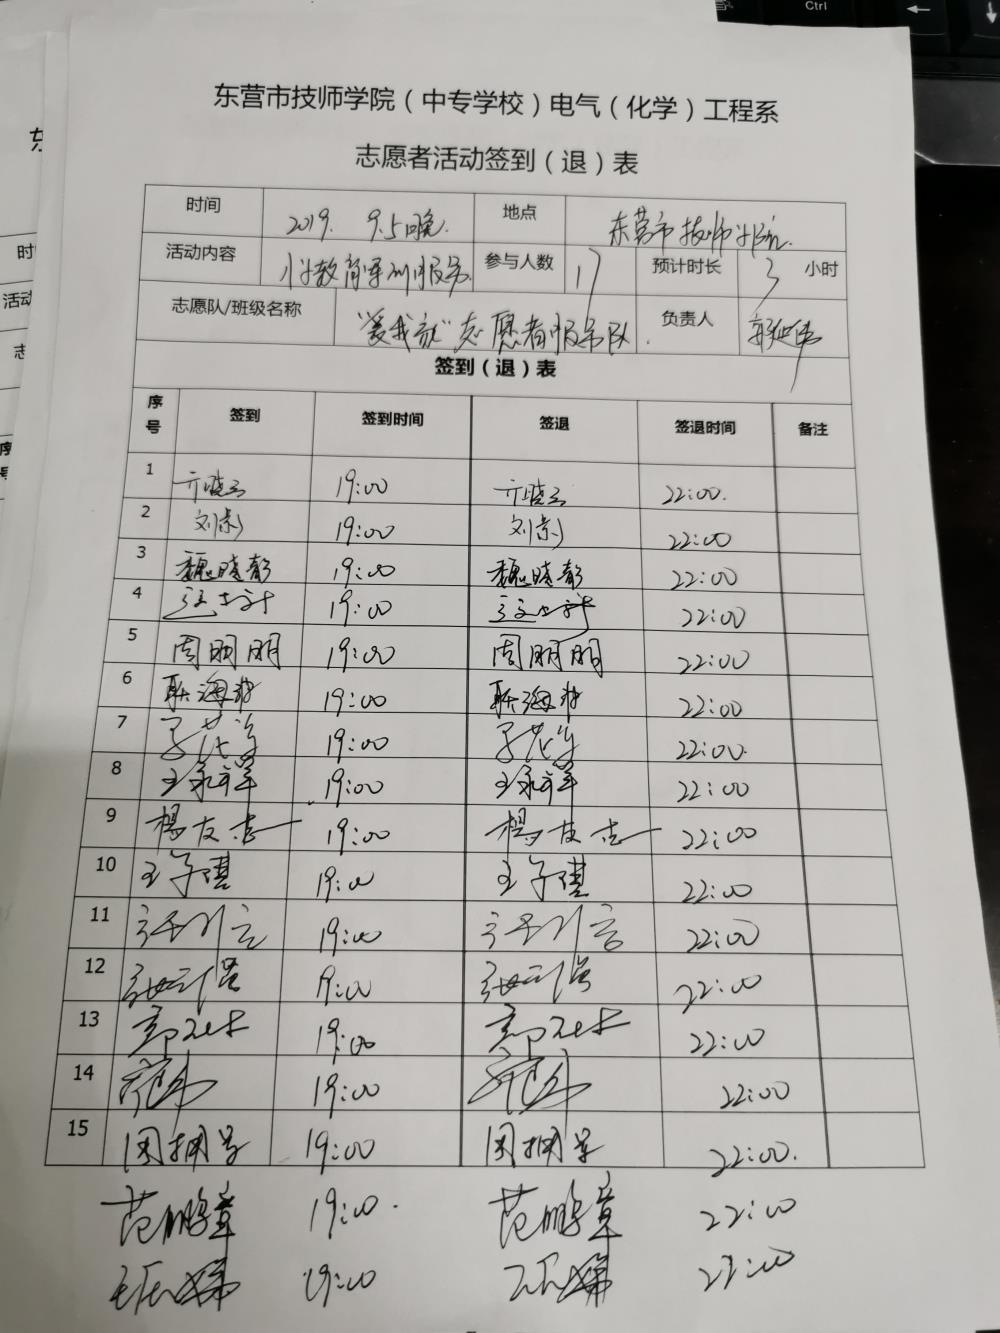 Ctrl
东营市技师学院（中专学校）电气（化学）工程系
志愿者活动签到（退）表
时间 2019. 9.5晚. 地点 东营市技师学院.
活动内容 教育军训服务. 参与人数 17 预计时长 3 小时
志愿队/班级名称 "爱我家"志愿者服务队. 负责人
签到（退）表
序号 签到 签到时间 签退 签退时间 备注
1 亓晓云 19:00 亓晓云 22:00.
2 刘彰 19:00 刘彰 22:00
3 魏晓彭 19:00 魏晓彭 22:00
4 19:00 22:00
5 周明明 19:00 周明明 22:00
6 耿海 19:00 耿海 22:00
7 19:00 22:00.
8 王永祥 19:00 王永祥 22:00
9 杨友志 19:00 杨友志 22:00
10 王子琪 19:00 王子琪 22:00
11 19:00 22:00
12 19:00 22:00
13 19:00 22:00
14 19:00 22:00
15 周拥军 19:00 周拥军 22:00.
范鹏章 19:00. 范鹏章 22:00
19:00 22:00
东
时
活动
志
序
号